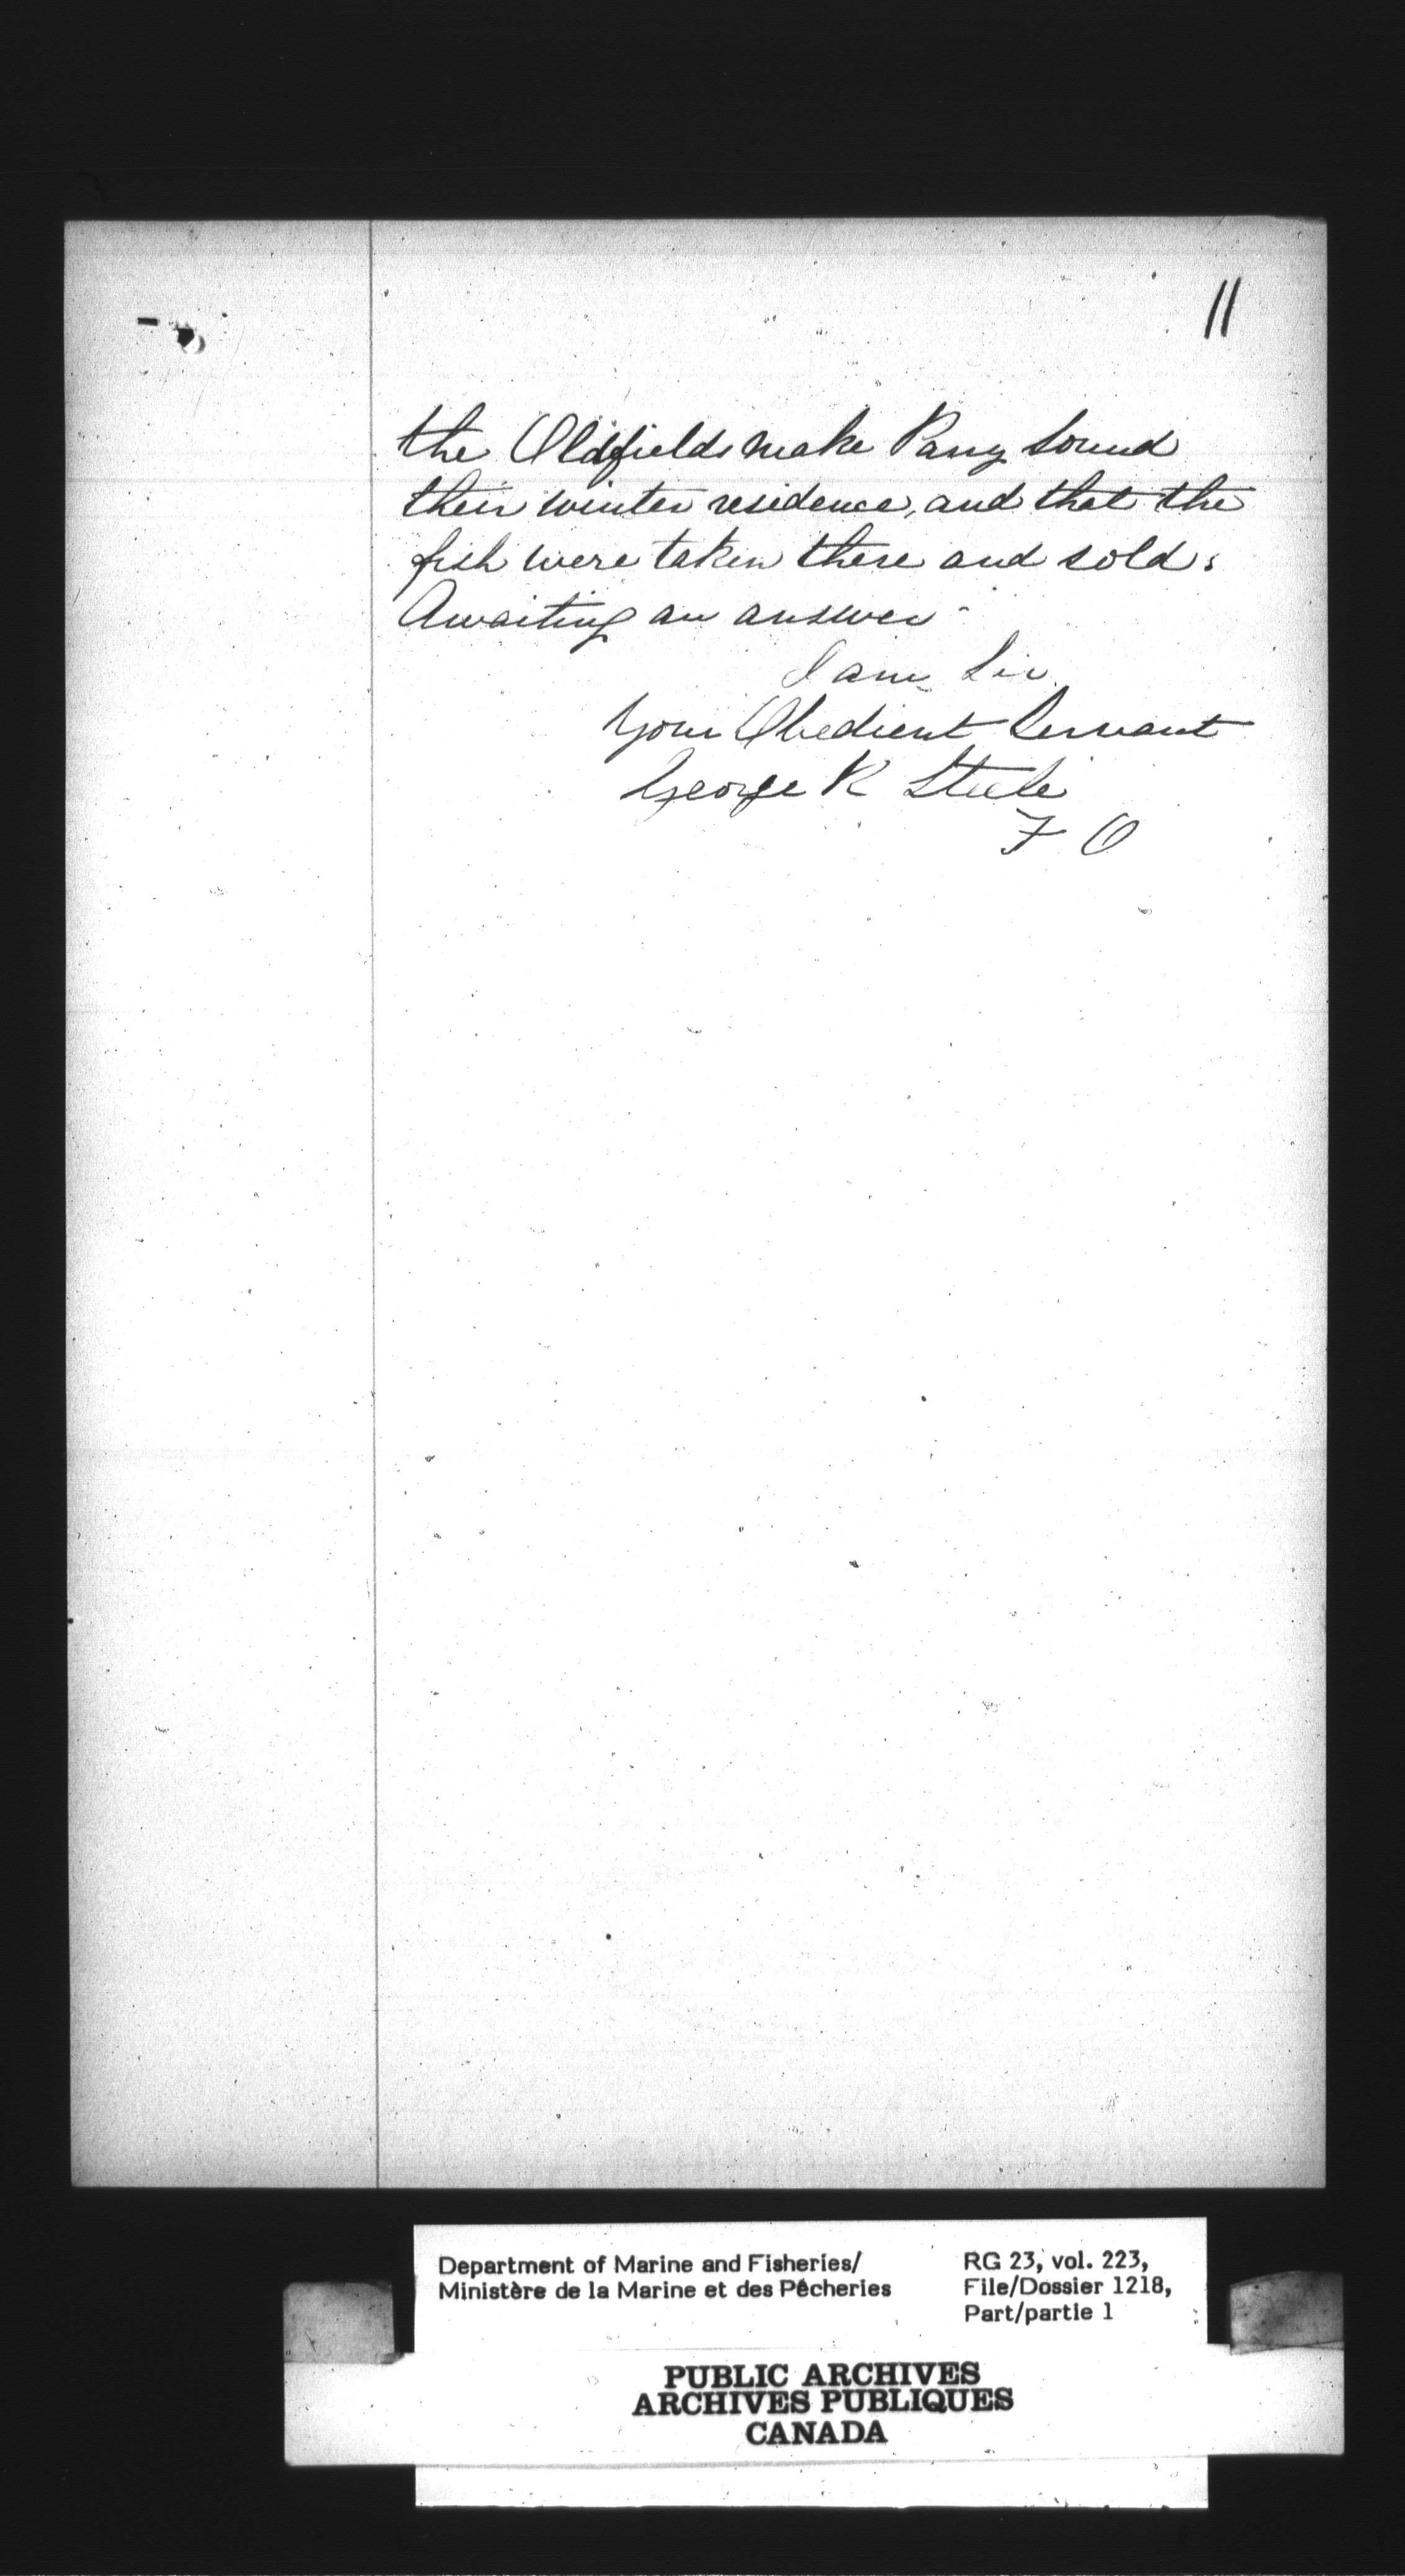 11
the Oldfields make Parry Sound
their winter residence, and that the
fish were taken there and sold.
Awaiting an answer -
I am Sir
Your Obedient Servant
George K Steele
F O
Department of Marine and Fisheries/
Ministère de la Marine et des Pêcheries
RG 23, vol. 223,
File/Dossier 1218,
Part/partie 1
PUBLIC ARCHIVES
ARCHIVES PUBLIQUES
CANADA